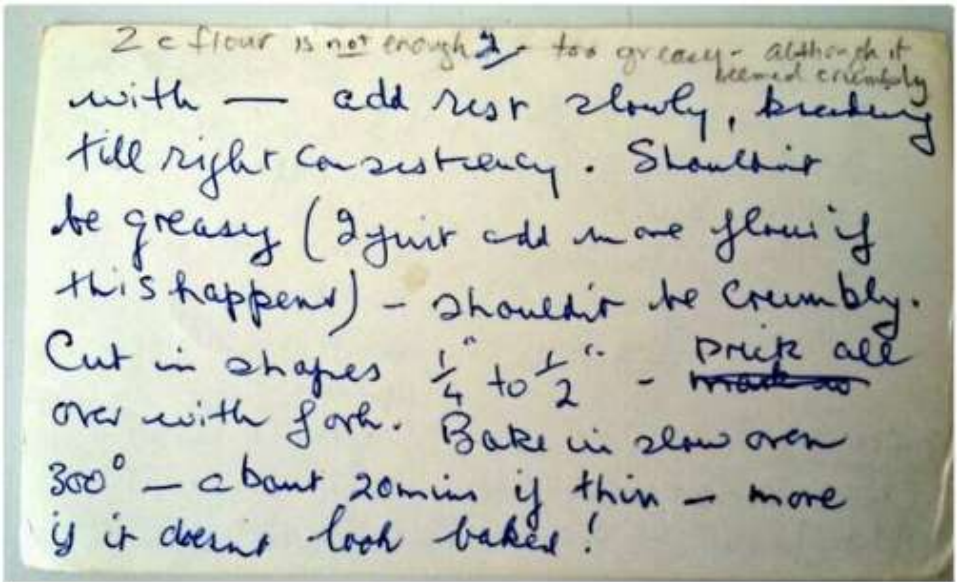 2 c flour is not enough - too greasy - although it
seemed crumbly
with — add rest slowly, kneading
till right consistency. Shouldn't
be greasy (I just add more flour if
this happens) - shouldn't be crumbly.
Cut in shapes 1/4" to 1/2" - prick all
over with fork. Bake in slow oven
300° — about 20mins if thin — more
if it doesn't look baked!